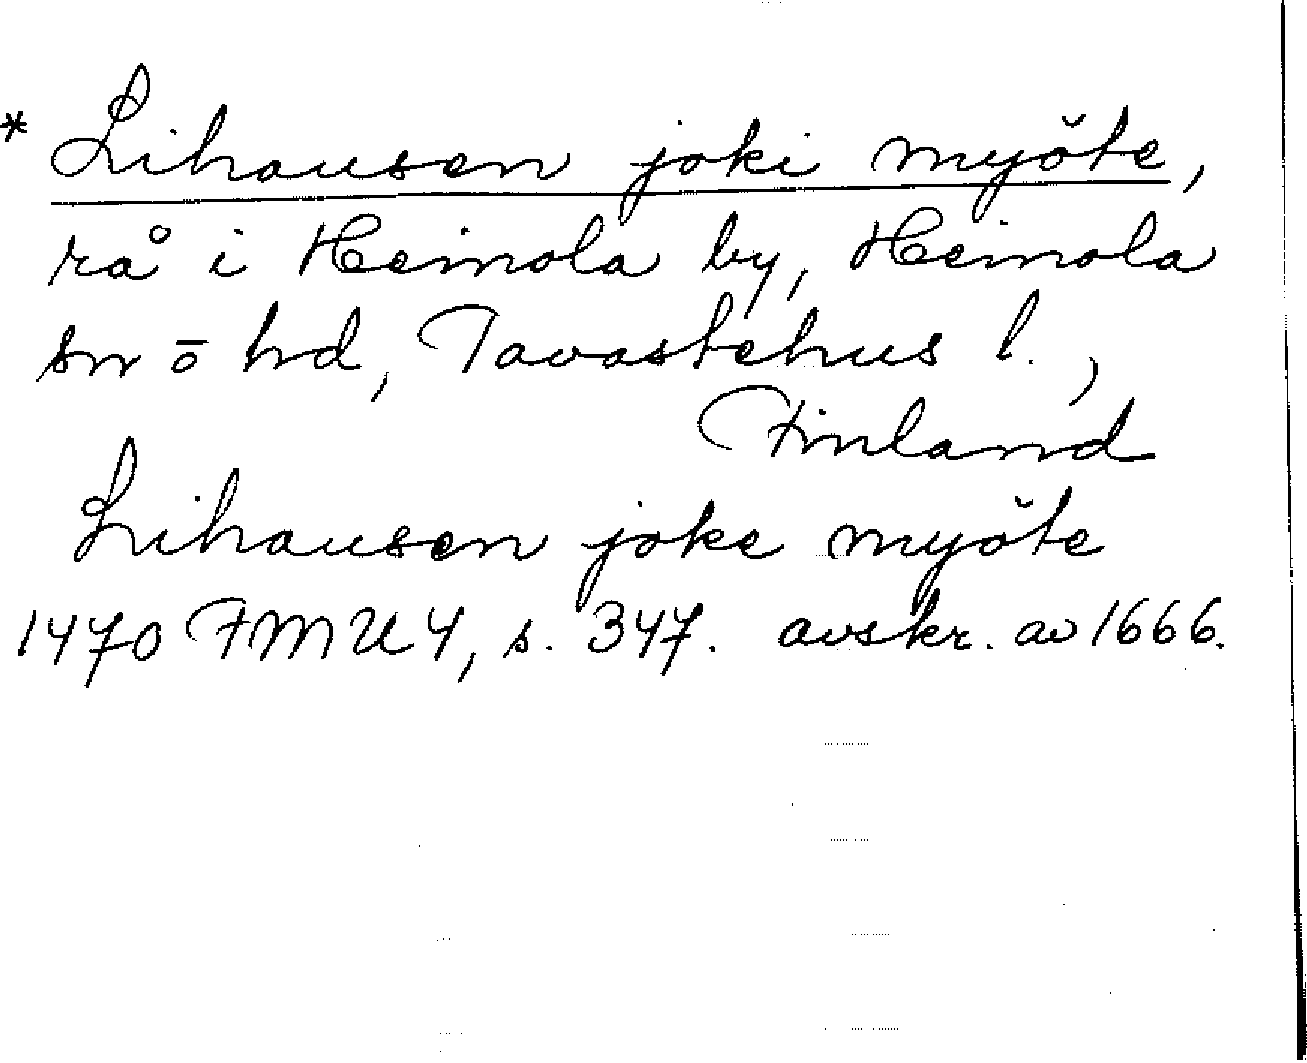 * Lihausen joki myöte,
rå i Heinola by, Heinola
sn ō hd, Tavastehus l.,
Finland
Lihausen joke myöte
1470 FMU 4, s. 347. avskr. av 1666.